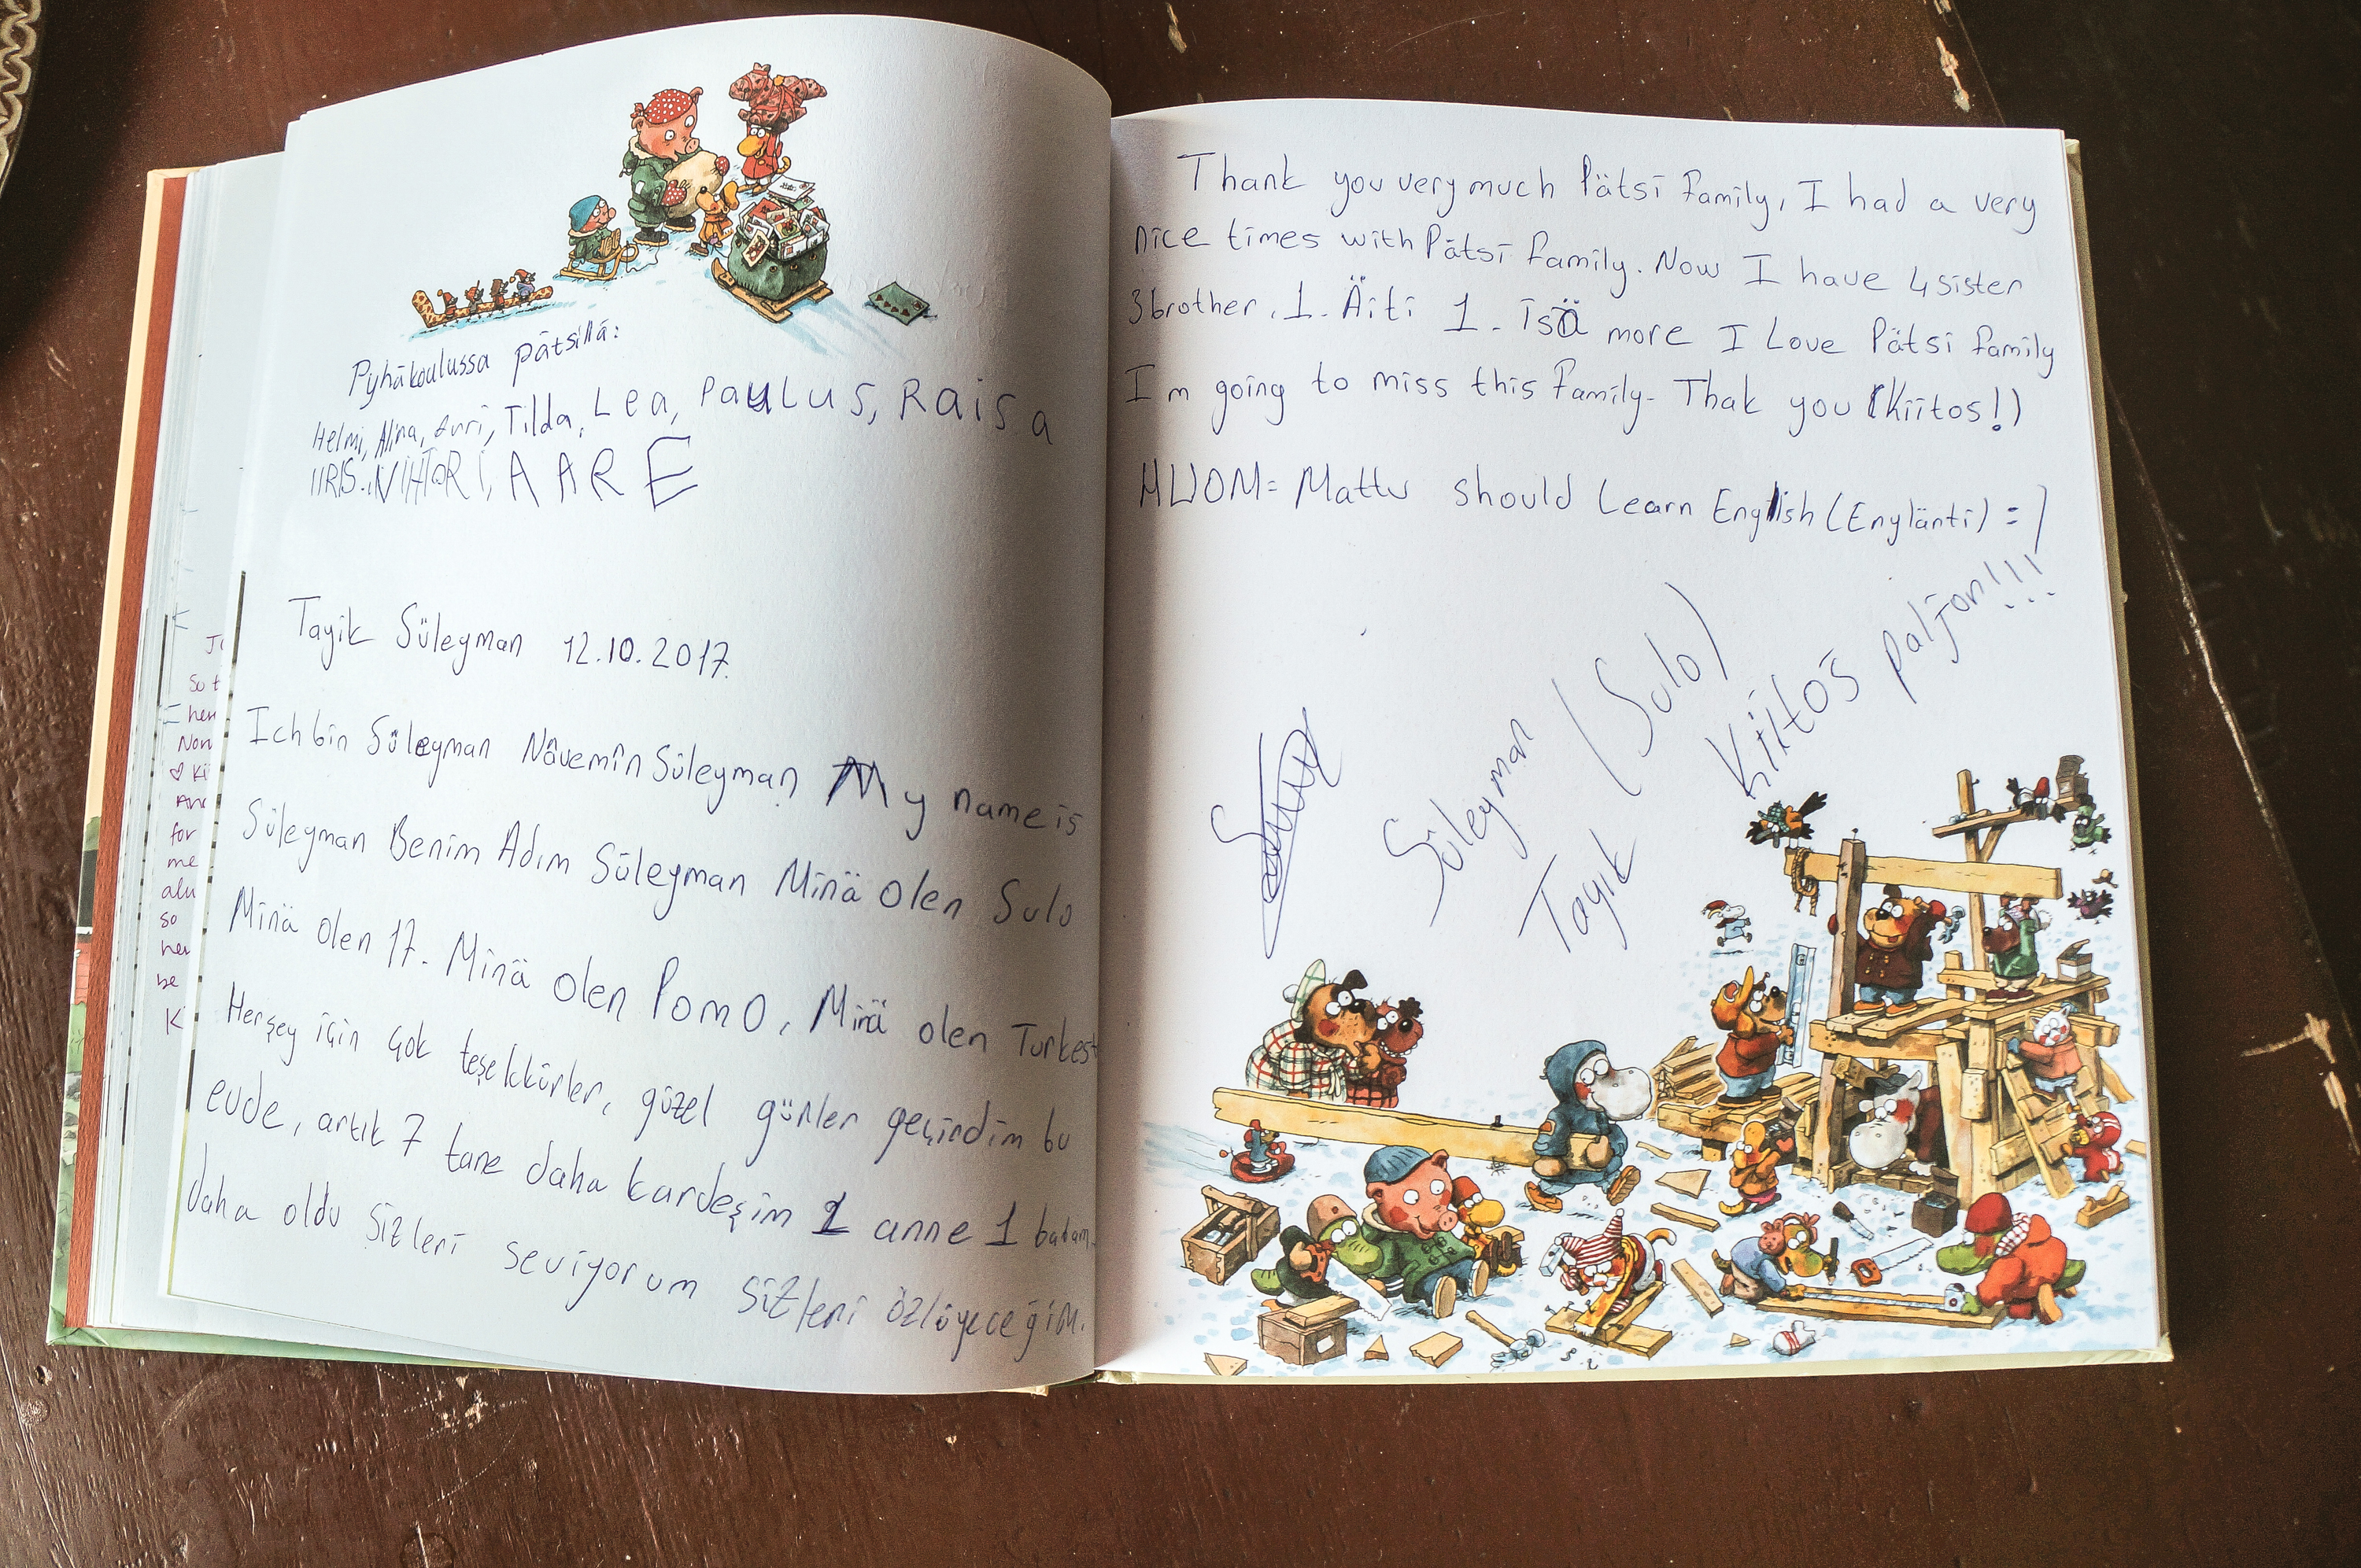 Pyhäkoulussa pätsillä:
Helmi, Alina, Tilda, Lea, Paulus, Raisa
IIRIS. NIHTORI, AARE
Tayik Süleyman 12.10.2017.
Ich bin Süleyman Nâvemîn Süleyman My name is
Süleyman Benim Adım Süleyman Minä olen Sulo
Minä olen 17. Minä olen Pomo, Minä olen Turkest
Herşey için çok teşekkürler, güzel günler geçirdim bu
evde, artık 7 tane daha kardeşim 1 anne 1 babam
daha oldu sizleri seviyorum sizleri özlüyeceğim.
so
her
Non
Ki
for
me
alu
so
her
be
K
Thank you very much Pätsi family, I had a very
nice times with Pätsi family. Now I have 4 sister
3 brother, 1. Äiti 1. isä more I Love Pätsi family
I m going to miss this family. Thak you (Kiitos!)
HUOM= Mattu should Learn English (Englänti) =)
Süleyman (Sulo)
Tayik
Kiitos paljon!!!